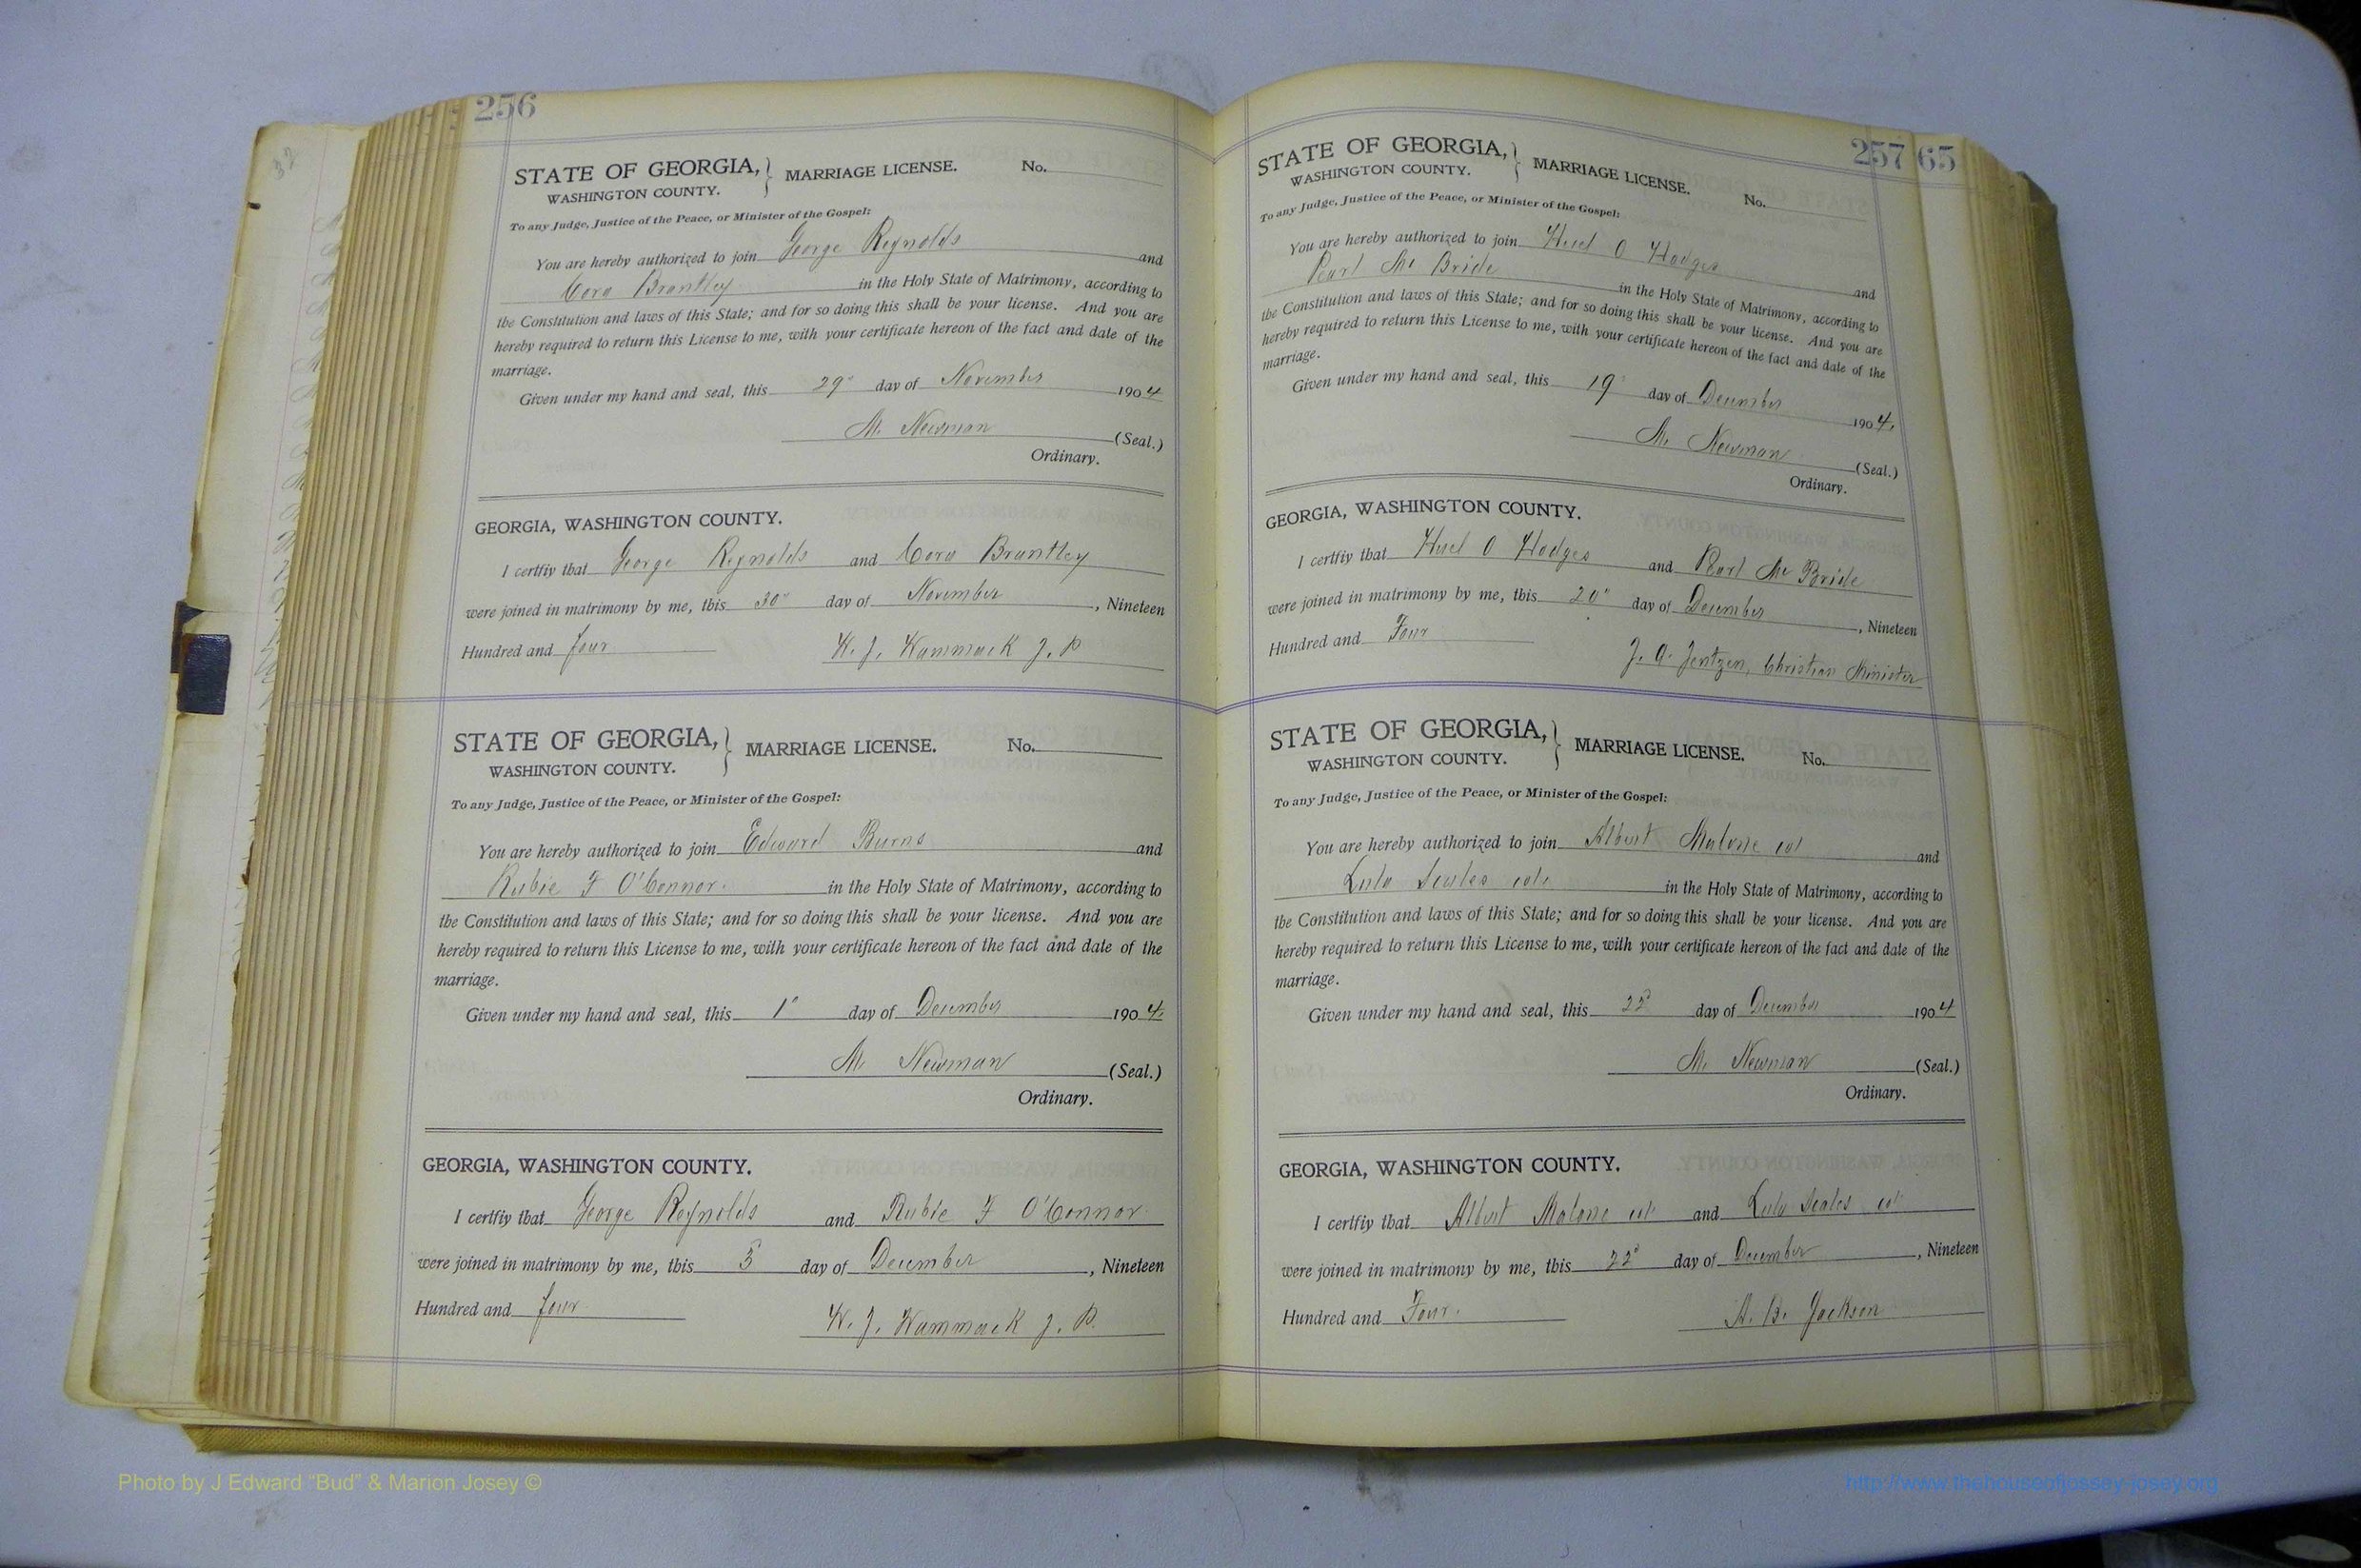 256
STATE OF GEORGIA, } MARRIAGE LICENSE. No.
WASHINGTON COUNTY.
To any Judge, Justice of the Peace, or Minister of the Gospel:
You are hereby authorized to join George Reynolds and
Cora Brantley in the Holy State of Matrimony, according to
the Constitution and laws of this State; and for so doing this shall be your license. And you are
hereby required to return this License to me, with your certificate hereon of the fact and date of the
marriage.
Given under my hand and seal, this 29" day of November 1904
M. Newman (Seal.)
Ordinary.
GEORGIA, WASHINGTON COUNTY.
I certfiy that George Reynolds and Cora Brantley
were joined in matrimony by me, this 30" day of November, Nineteen
Hundred and four W. J. Wammack J. P.
STATE OF GEORGIA, } MARRIAGE LICENSE. No.
WASHINGTON COUNTY.
To any Judge, Justice of the Peace, or Minister of the Gospel:
You are hereby authorized to join Edward Burns and
Rubie F O'Connor. in the Holy State of Matrimony, according to
the Constitution and laws of this State; and for so doing this shall be your license. And you are
hereby required to return this License to me, with your certificate hereon of the fact and date of the
marriage.
Given under my hand and seal, this 1" day of December 1904.
M. Newman (Seal.)
Ordinary.
GEORGIA, WASHINGTON COUNTY.
I certfiy that George Reynolds and Rubie F O'Connor
were joined in matrimony by me, this 3 day of December, Nineteen
Hundred and four W. J. Wammack J. P.
257 65
STATE OF GEORGIA, } MARRIAGE LICENSE. No.
WASHINGTON COUNTY.
To any Judge, Justice of the Peace, or Minister of the Gospel:
You are hereby authorized to join O Hodges and
Pearl Mc Bride in the Holy State of Matrimony, according to
the Constitution and laws of this State; and for so doing this shall be your license. And you are
hereby required to return this License to me, with your certificate hereon of the fact and date of the
marriage.
Given under my hand and seal, this 19" day of December 1904.
M. Newman (Seal.)
Ordinary.
GEORGIA, WASHINGTON COUNTY.
I certfiy that O Hodges and Pearl Mc Bride
were joined in matrimony by me, this 20" day of December, Nineteen
Hundred and Four
J. A. Jentzen, Christian Minister
STATE OF GEORGIA, } MARRIAGE LICENSE. No.
WASHINGTON COUNTY.
To any Judge, Justice of the Peace, or Minister of the Gospel:
You are hereby authorized to join Albert Malone col and
Lula Scales col. in the Holy State of Matrimony, according to
the Constitution and laws of this State; and for so doing this shall be your license. And you are
hereby required to return this License to me, with your certificate hereon of the fact and date of the
marriage.
Given under my hand and seal, this 22d day of December 1904
M. Newman (Seal.)
Ordinary.
GEORGIA, WASHINGTON COUNTY.
I certfiy that Albert Malone col and Lula Scales col
were joined in matrimony by me, this 22d day of December, Nineteen
Hundred and Four. A. B. Jackson
Photo by J Edward "Bud" & Marion Josey ©
http://www.thehouseofjossey-josey.org